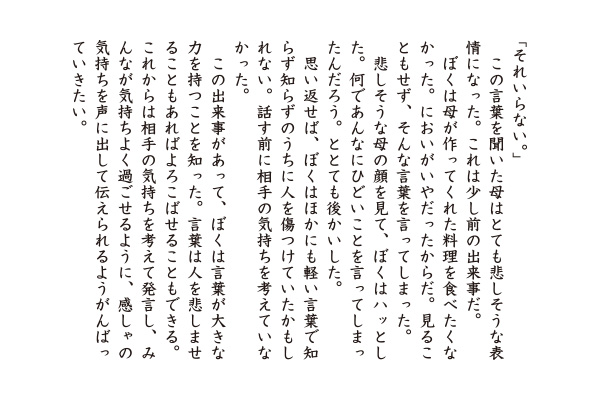 「それいらない。」
　この言葉を聞いた母はとても悲しそうな表
情になった。これは少し前の出来事だ。
　ぼくは母が作ってくれた料理を食べたくな
かった。においがいやだったからだ。見るこ
ともせず、そんな言葉を言ってしまった。
　悲しそうな母の顔を見て、ぼくはハッとし
た。何であんなにひどいことを言ってしまっ
たんだろう。ととても後かいした。
　思い返せば、ぼくはほかにも軽い言葉で知
らず知らずのうちに人を傷つけていたかもし
れない。話す前に相手の気持ちを考えていな
かった。
　この出来事があって、ぼくは言葉が大きな
力を持つことを知った。言葉は人を悲しませ
ることもあればよろこばせることもできる。
これからは相手の気持ちを考えて発言し、み
んなが気持ちよく過ごせるように、感しゃの
気持ちを声に出して伝えられるようがんばっ
ていきたい。